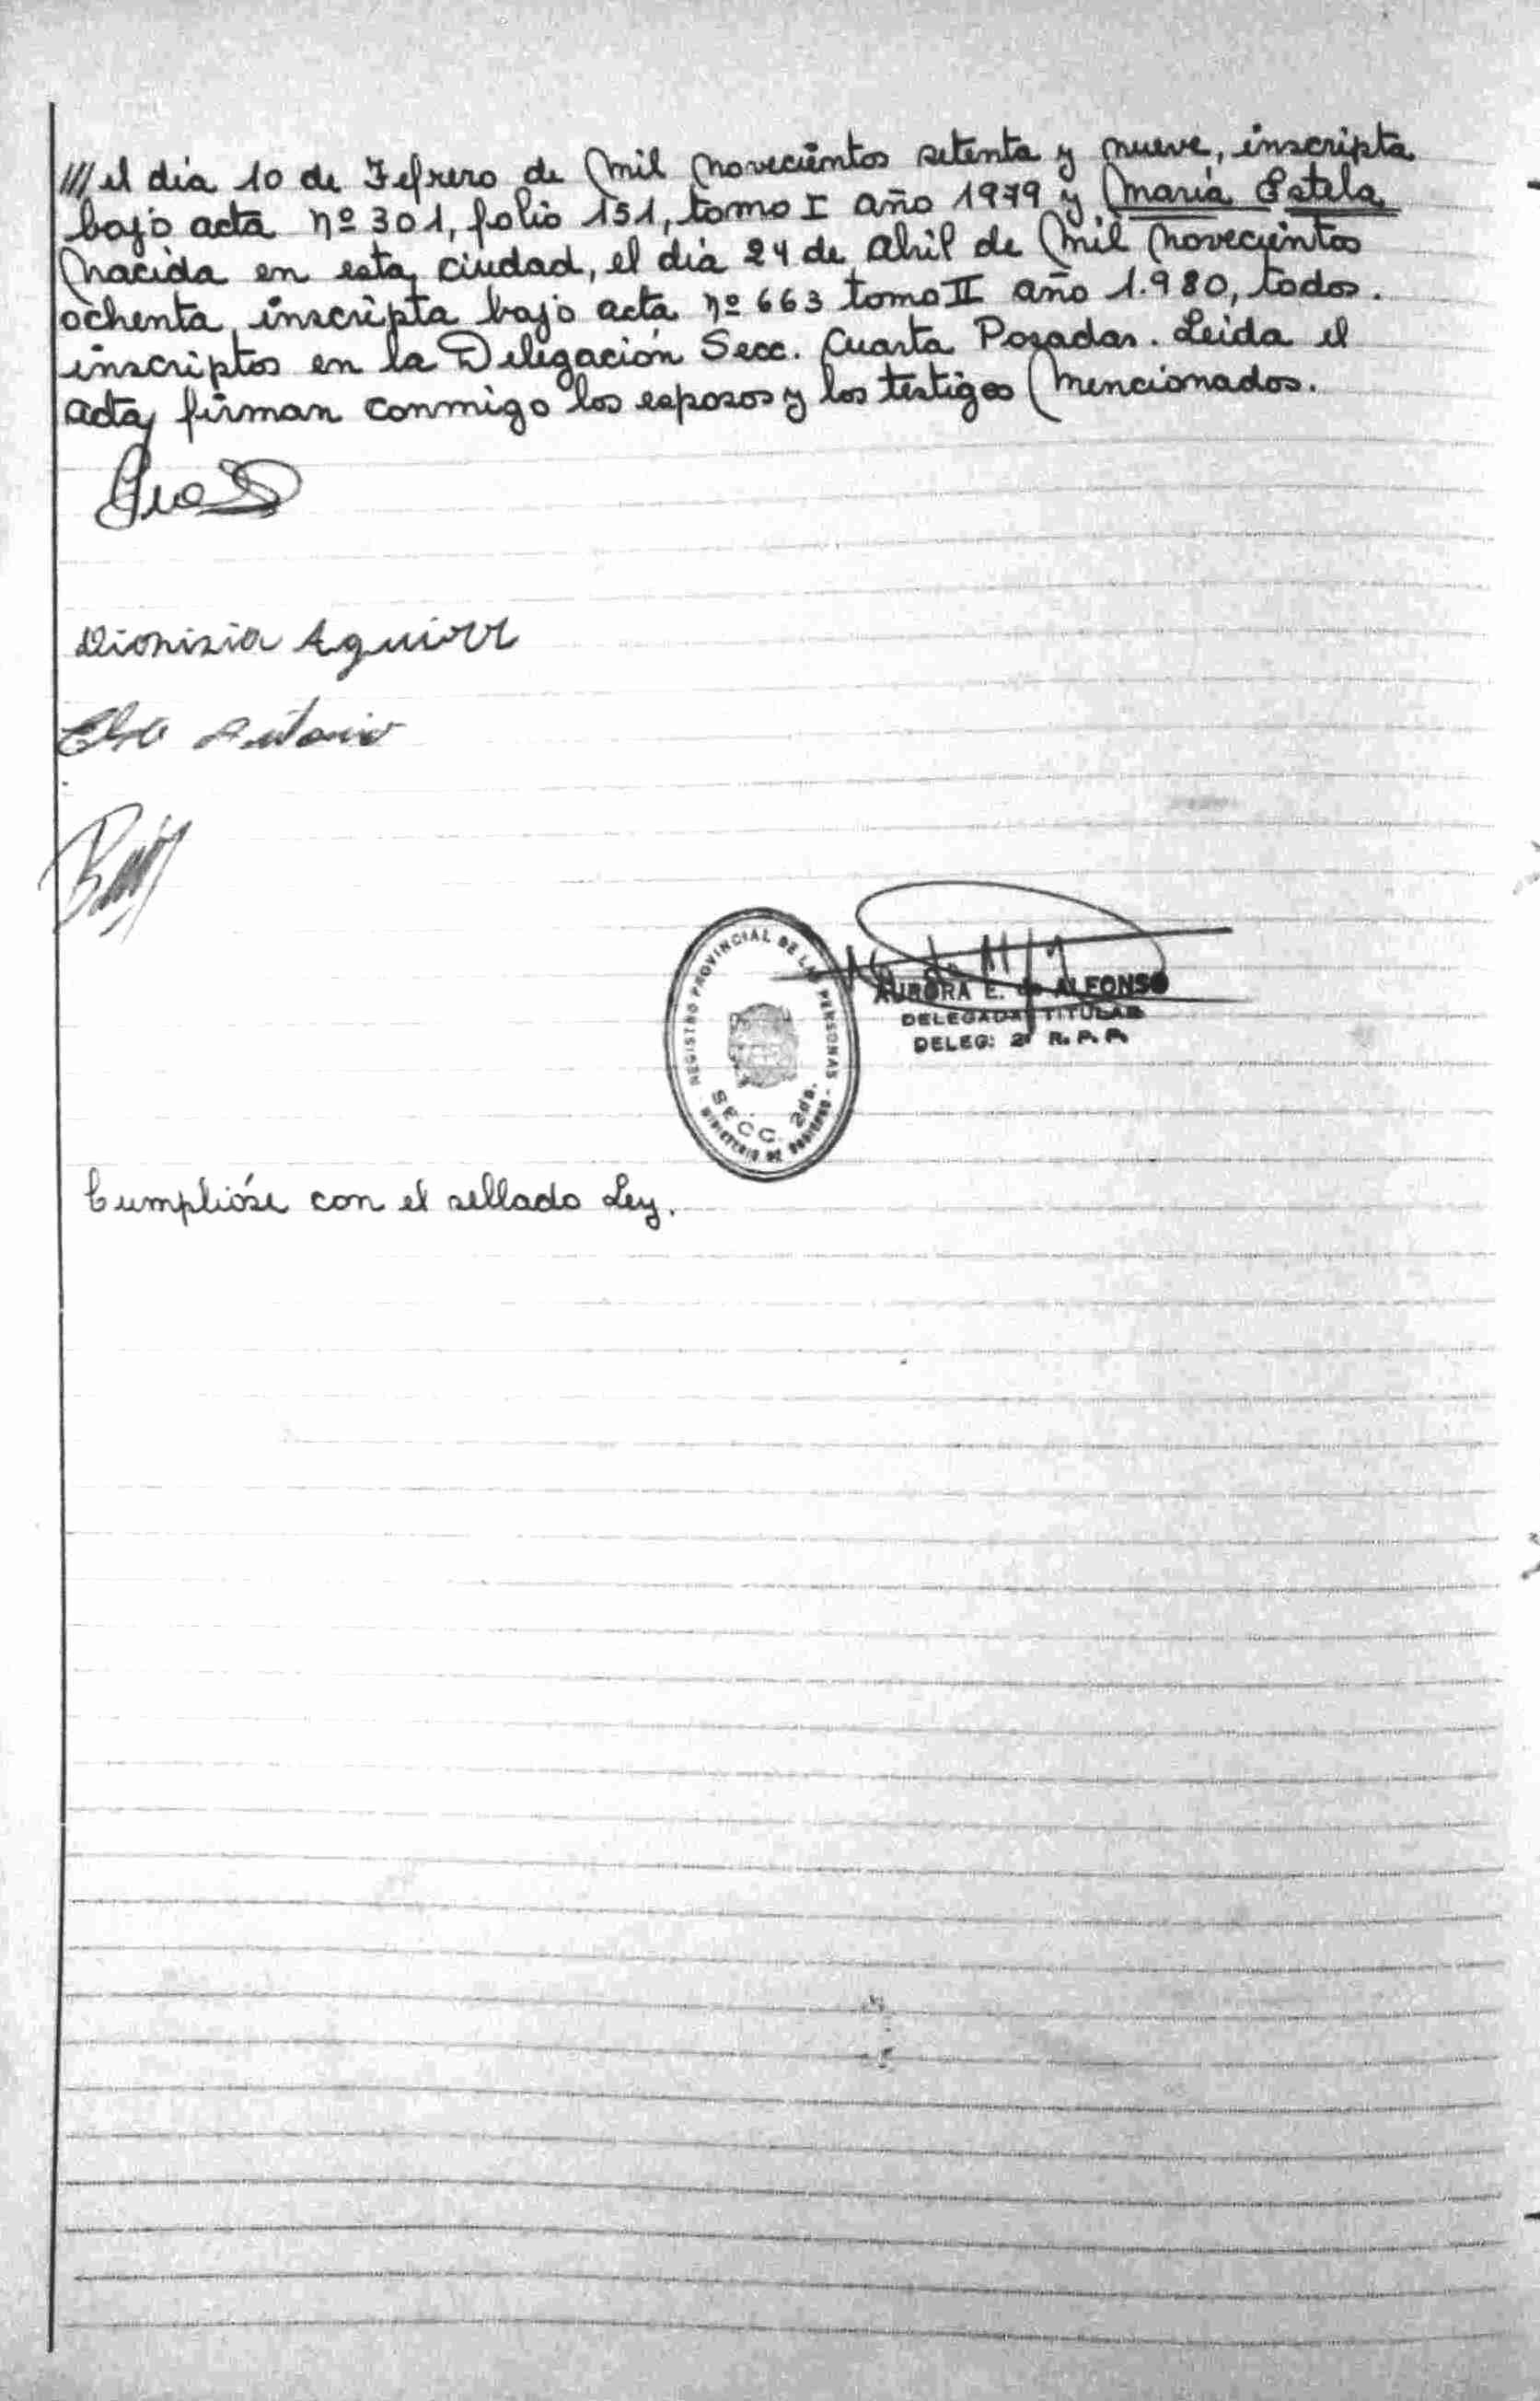 /// el día 10 de Febrero de Mil Novecientos setenta y nueve, inscripta
bajo acta nº 301, folio 151, tomo I año 1979 y María Estela
Nacida en esta ciudad, el día 24 de Abril de Mil Novecientos
ochenta, inscripta bajo acta nº 663 tomo II año 1.980, todos.
inscriptos en la Delegación Secc. Cuarta Posadas. Leída el
acta, firman conmigo los esposos y los testigos Mencionados.
Dionisia Aguirr
Antonio
REGISTRO PROVINCIAL DE LAS PERSONAS
SECC. 2da.
MINISTERIO DE GOBIERNO
AURORA E. de ALFONSO
DELEGADA TITULAR
DELEG: 2ª R. P. P.
Cumplióse con el sellado Ley.